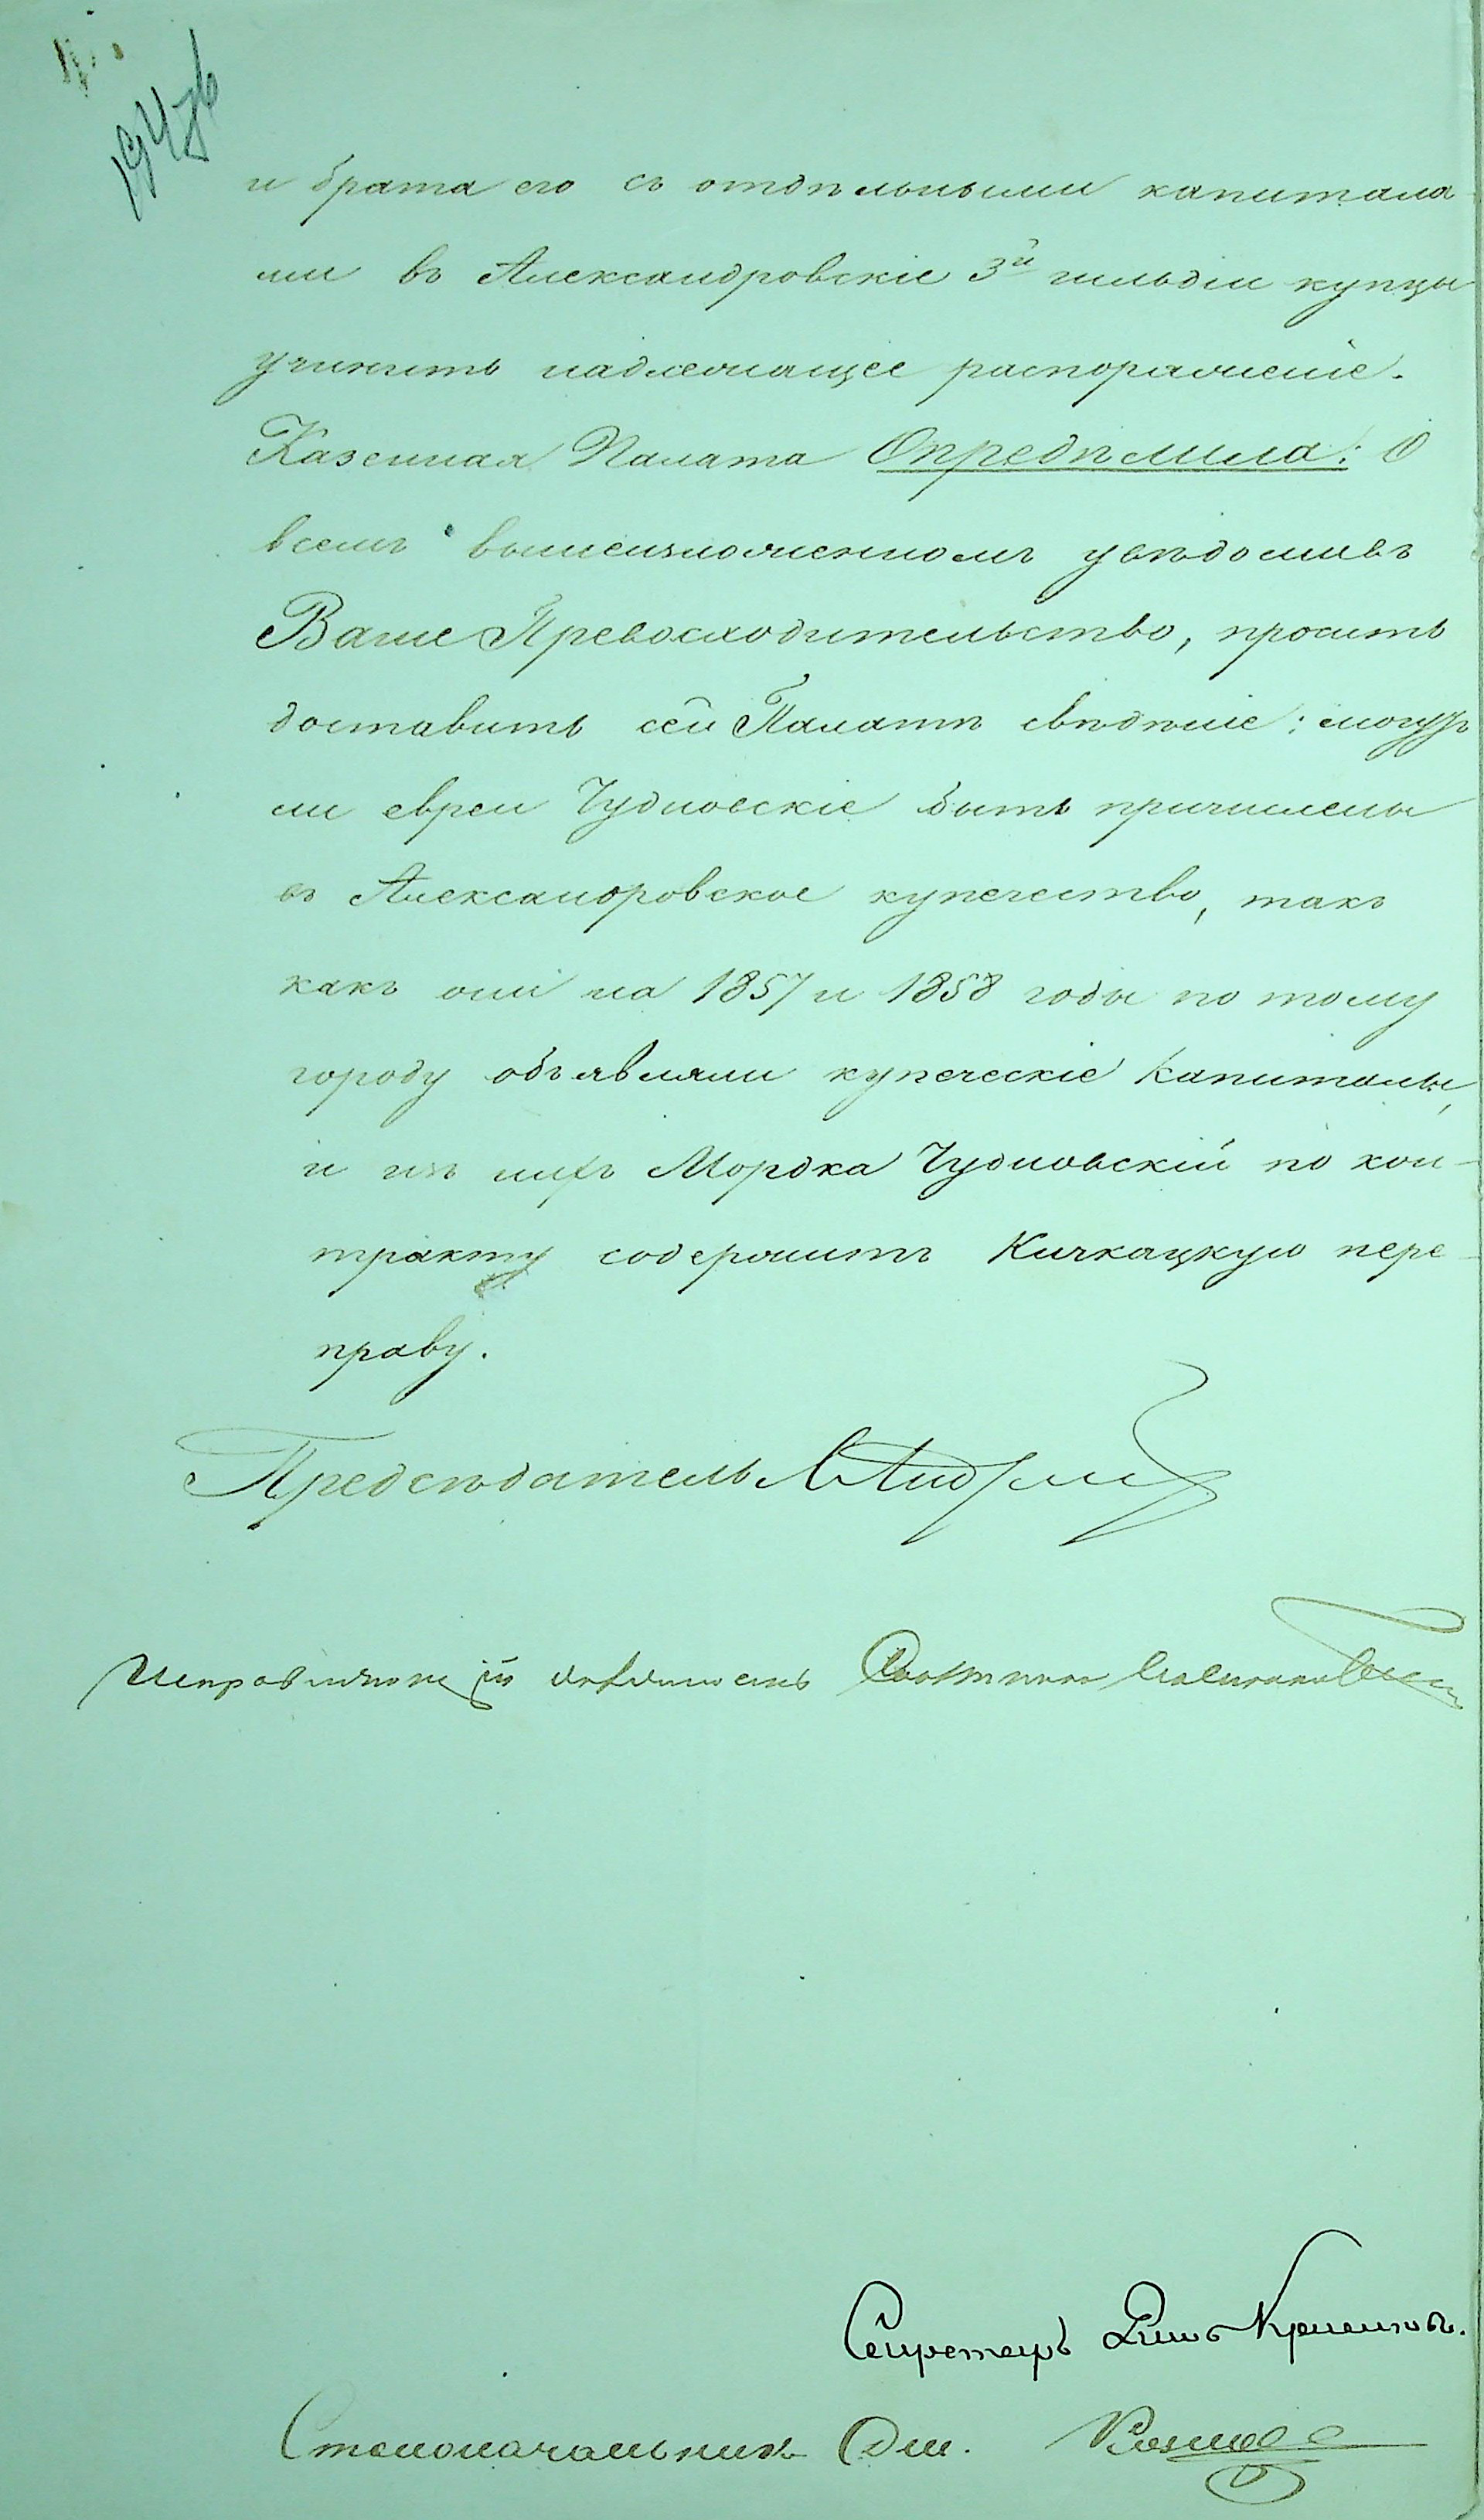 и брата его съ отдѣльными капитала-
ми въ Александровскіе 3й гильдіи купцы
учинить надлежащее распоряженіе.
Казенная Палата Опредѣлила: О
всемъ вышеизложенномъ увѣдомивъ
Ваше Превосходительство, просить
доставить сей Палатѣ свѣдѣніе: могутъ
ли евреи Чудновскіе быть причислены
въ Александровское купечество, такъ
какъ они на 1857 и 1858 годы по тому
городу объявляли купеческіе капиталы,
и изъ нихъ Мордка Чудновскій по кон-
тракту содержитъ Кичкаскую пере-
праву.
Предсѣдатель
Исправляющій должность
Секретарь
Столоначальникъ